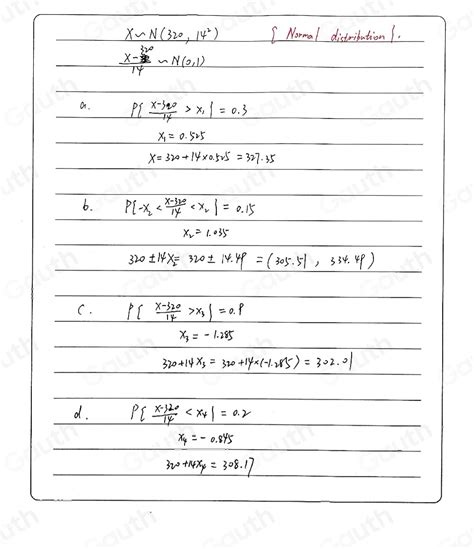 X ~ N(320, 14²) { Normal distribution }.
X-320 / 14 ~ N(0,1)
a. P{ X-320 / 14 > x₁ } = 0.3
X₁ = 0.525
X = 320+14×0.525 = 327.35
b. P{ -X₂ < X-320 / 14 < X₂ } = 0.15
X₂ = 1.035
320 ± 14X₂ = 320 ± 14.49 = (305.51, 334.49)
c. P{ X-320 / 14 > X₃ } = 0.9
X₃ = -1.285
320+14X₃ = 320+14×(-1.285) = 302.01
d. P{ X-320 / 14 < X₄ } = 0.2
X₄ = -0.845
320+14X₄ = 308.17
Gauth